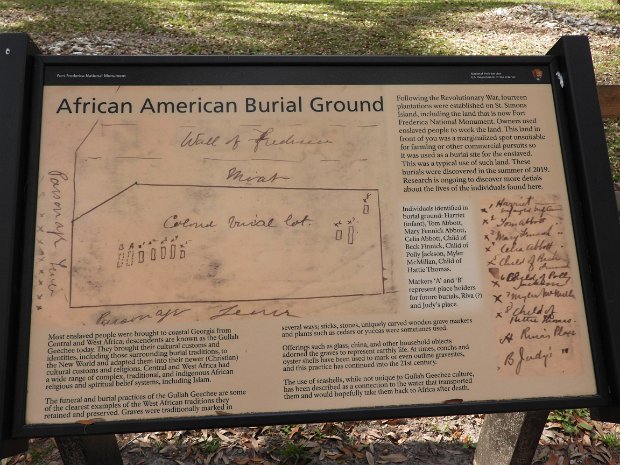 Fort Frederica National Monument
National Park Service
U.S. Department of the Interior
African American Burial Ground
Following the Revolutionary War, fourteen
plantations were established on St. Simons
Island, including the land that is now Fort
Frederica National Monument. Owners used
enslaved people to work the land. This land in
front of you was a marginalized spot unsuitable
for farming or other commercial pursuits so
it was used as a burial site for the enslaved.
This was a typical use of such land. These
burials were discovered in the summer of 2019.
Research is ongoing to discover more details
about the lives of the individuals found here.
Wall of Frederica
Moat
Colored burial lot.
Parsonage Fence
Parsonage Fence
B A
Individuals identified in
burial ground: Harriet
(infant), Tom Abbott,
Mary Fennick Abbott,
Celia Abbott, Child of
Beck Finnick, Child of
Polly Jackson, Myler
McMillan, Child of
Hattie Thomas.
Markers 'A' and 'B'
represent place holders
for future burials, Riva (?)
and Judy's place.
x 1 Harriet
x 2 Tom Abbott
x 3 Mary
x 4 Celia Abbott
5 Child of
6 Child of Polly
Jackson
x 7 Myler
x 8 Child of
Hattie Thomas
A Riva's Place
B Judy's "
Most enslaved people were brought to coastal Georgia from
Central and West Africa, descendants are known as the Gullah
Geechee today. They brought their cultural customs and
identities, including those surrounding burial traditions, to
the New World and adapted them into their newer (Christian)
cultural customs and religions. Central and West Africa had
a wide range of complex, traditional, and indigenous African
religious and spiritual belief systems, including Islam.
The funeral and burial practices of the Gullah Geechee are some
of the clearest examples of the West African traditions they
retained and preserved. Graves were traditionally marked in
several ways; sticks, stones, uniquely carved wooden grave markers
and plants such as cedars or yuccas were sometimes used.
Offerings such as glass, china, and other household objects
adorned the graves to represent earthly life. At times, conchs and
oyster shells have been used to mark or even outline gravesites,
and this practice has continued into the 21st century.
The use of seashells, while not unique to Gullah Geechee culture,
has been described as a connection to the water that transported
them and would hopefully take them back to Africa after death.